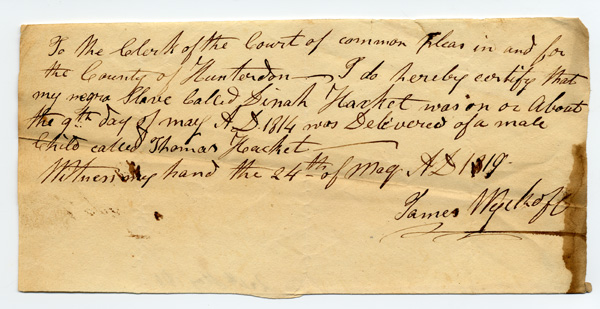 To the Clerk of the Court of common pleas in and for
the County of Hunterdon — I do hereby certify that
my negro Slave Called Dinah Hacket was on or About
the 9th day of may A.D 1814 was Delivered of a male
Child called Thomas Hacket
Witness my hand the 24th of May A D 1819
James Wyckoff